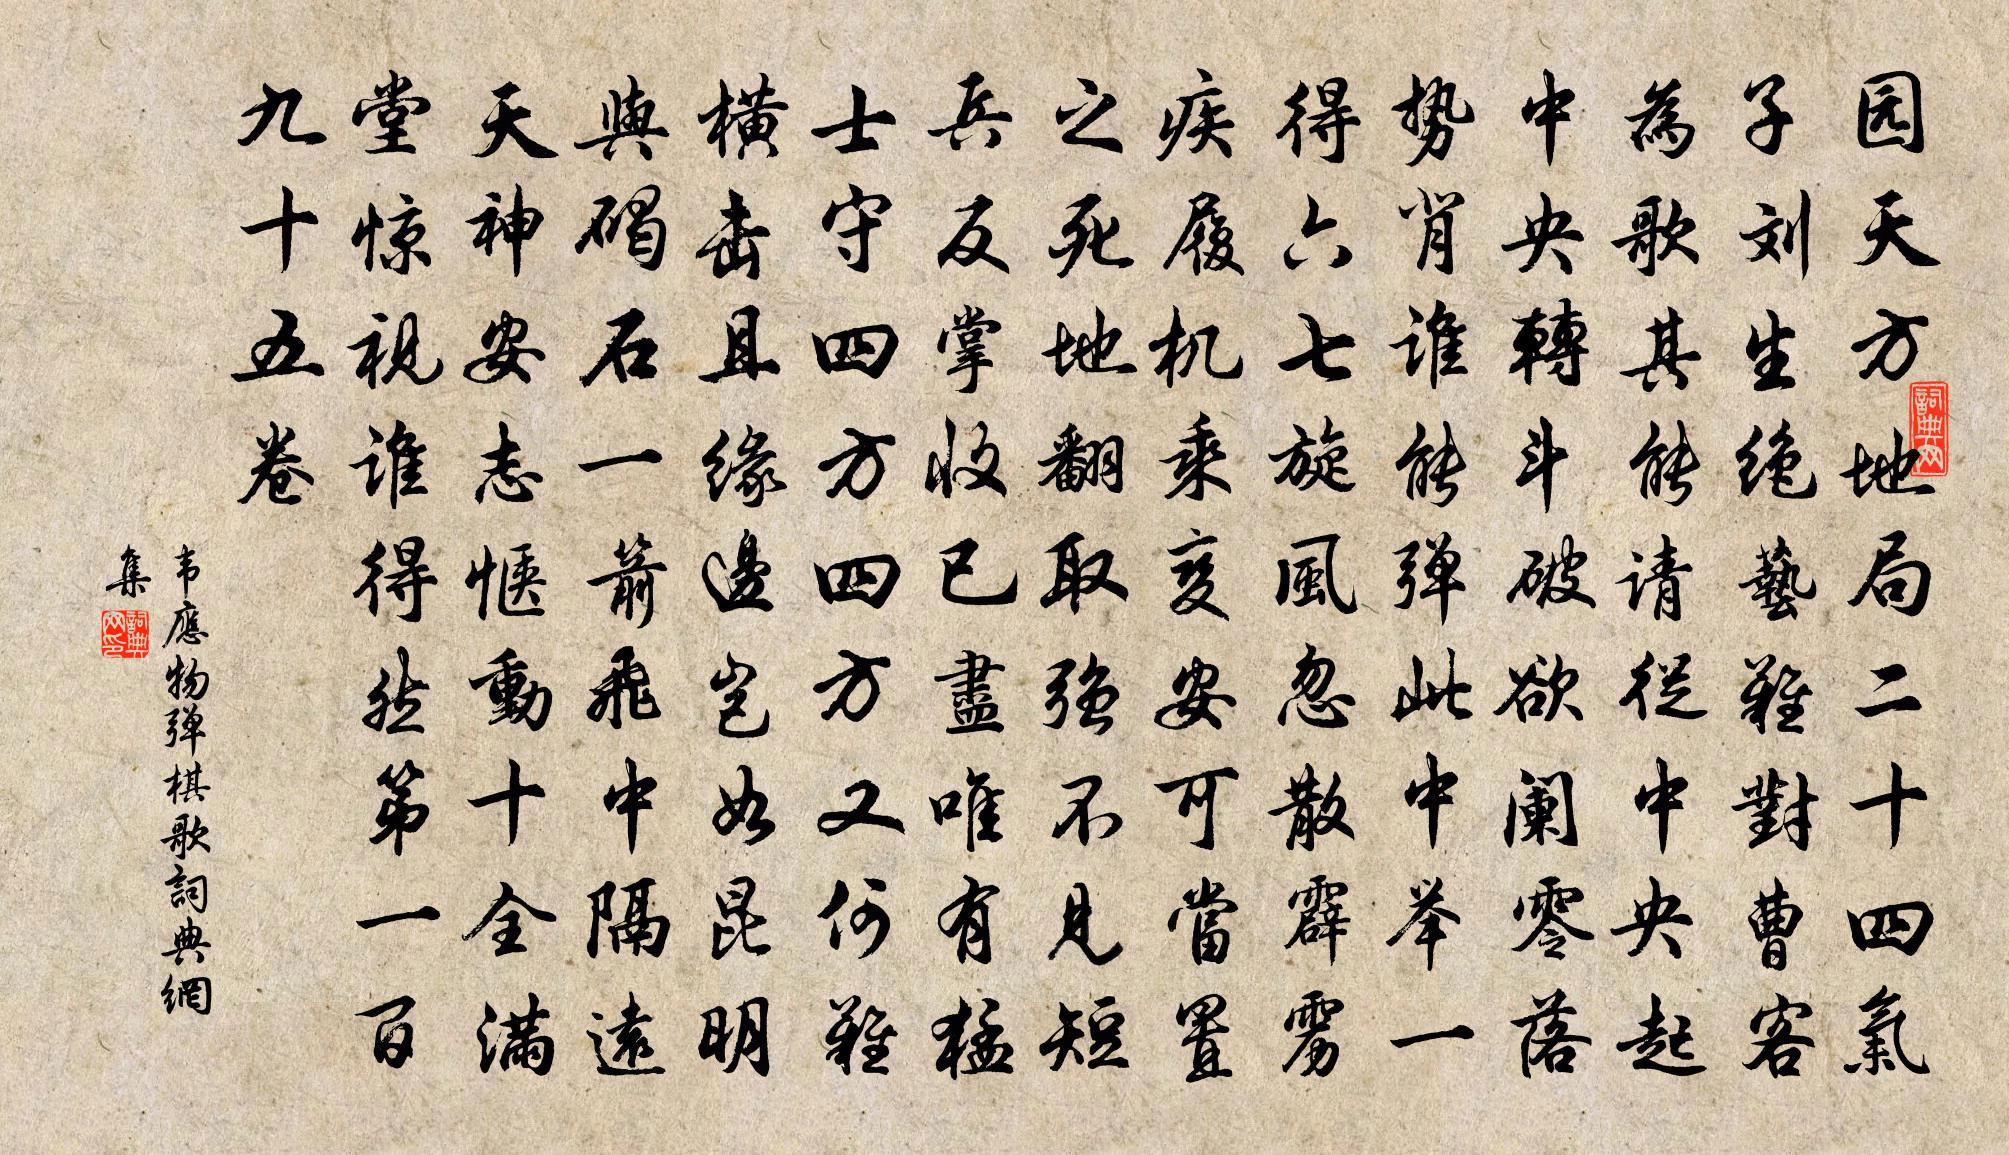 园天方地局二十四氣
子刘生绝藝難對曹客
為歌其能请從中央起
中央轉斗破欲阑零落
势背谁能弹此中举一
得六七旋風忽散霹雳
疾履机乘变安可當置
之死地翻取强不見短
兵反掌收已盡唯有猛
士守四方四方又何難
横击且缘邊岂如昆明
與碣石一箭飛中隔遠
天神安志惬動十全满
堂惊視谁得然第一百
九十五卷
韦應物弹棋歌詞典網
集
詞典网
詞典网印